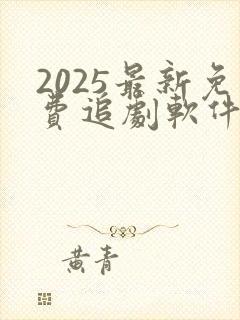 2025最新免
費追劇軟件
黄青